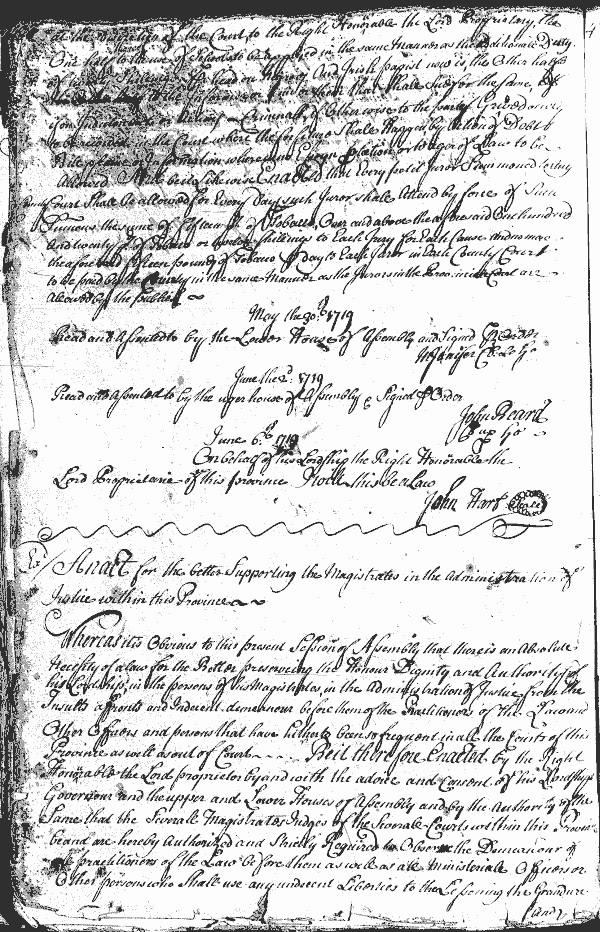 at the direction of the Court to the Right Honorable the Lord Proprietary, the
One half to the use of Schools to be applied in the same Manner as the additional Duty
of Irish Servants now is the Other half
shall sue for the same,
Criminal, or Otherwise to the party Grieved
to be recovered in the Court where the shall happen by action of Debt
Bill plaint or Information wherein no Essoyn protection or Wager of Law to be
Allowed And be it likewise Enacted that Every petit Juror Summoned to any
County Court Shall be allowed for Every Day such Juror shall Attend by force of Such
Summons the sume of fifteen of Tobacco, Over and above the aforesaid One hundred
And twenty of Tobacco or shillings to Each Jury for Each Cause and no more
the aforesaid fifteen pounds of Tobacco day to Each Juror in Each County Court
to be paid by the County in the same Manner as the Jurors in the Provincial Court are
Allowed by the publick
May the 30th 1719
Read and Assented to by the Lower House of Assembly and Signd Order
Cl Lo Ho
June the 2d: 1719
Read and Assented to by the upper house of Assembly & Signed Order
John Beard
Cl up Ho
June 6th 1719
On behalf of his Lordship the Right Honorable the
Lord Proprietarie of this province I Will this be a Law
John Hart Seale
An Act for the better Supporting the Magistrates in the Administration of
Justice within this Province
Whereas its Obvious to this present Session of Assembly that there is an Absolute
Necesity of a Law for the Better preserving the Honour Dignity and Authority of
his Lordship, in the persons of his Magistrates, in the Administration of Justice from the
Insults affronts and Indecent demeanour before them of the Practitioners of the Law and
Other Officers and persons that have hitherto been so frequent in all the Courts of this
Province as well as out of Court Be it therefore Enacted by the Right
Honorable the Lord proprietor by and with the advice and Consent of his Lordships
Governour and the upper and Lower Houses of Assembly and by the Authority of the
Same that the Severall Magistrates Judges of the Severall Courts within this Province
be and are hereby Authorized and Strictly Required to Observe the Demeanour of
practitioners of the Law before them as well as all Ministeriall Officers or
Other persons who Shall use any undecent Liberties to the Lessening the Grandure
(and